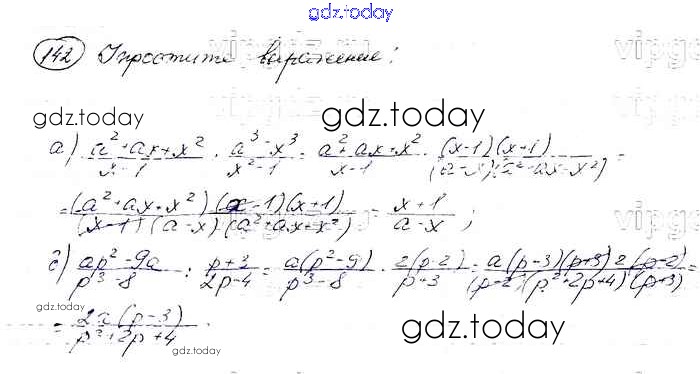 gdz.today
142 Упростите выражение:
gdz.today gdz.today
а) (a²+ax+x²)/(x-1) : (a³-x³)/(x²-1) = (a²+ax+x²)/(x-1) · ((x-1)(x+1))/((a-x)(a²+ax+x²)) =
= ((a²+ax+x²)(x-1)(x+1))/((x-1)(a-x)(a²+ax+x²)) = (x+1)/(a-x);
б) (ap²-9a)/(p³-8) : (p+3)/(2p-4) = (a(p²-9))/(p³-8) · (2(p-2))/(p+3) = (a(p-3)(p+3)2(p-2))/((p-2)(p²+2p+4)(p+3)) =
gdz.today
= (2a(p-3))/(p²+2p+4)
gdz.today
gdz.today